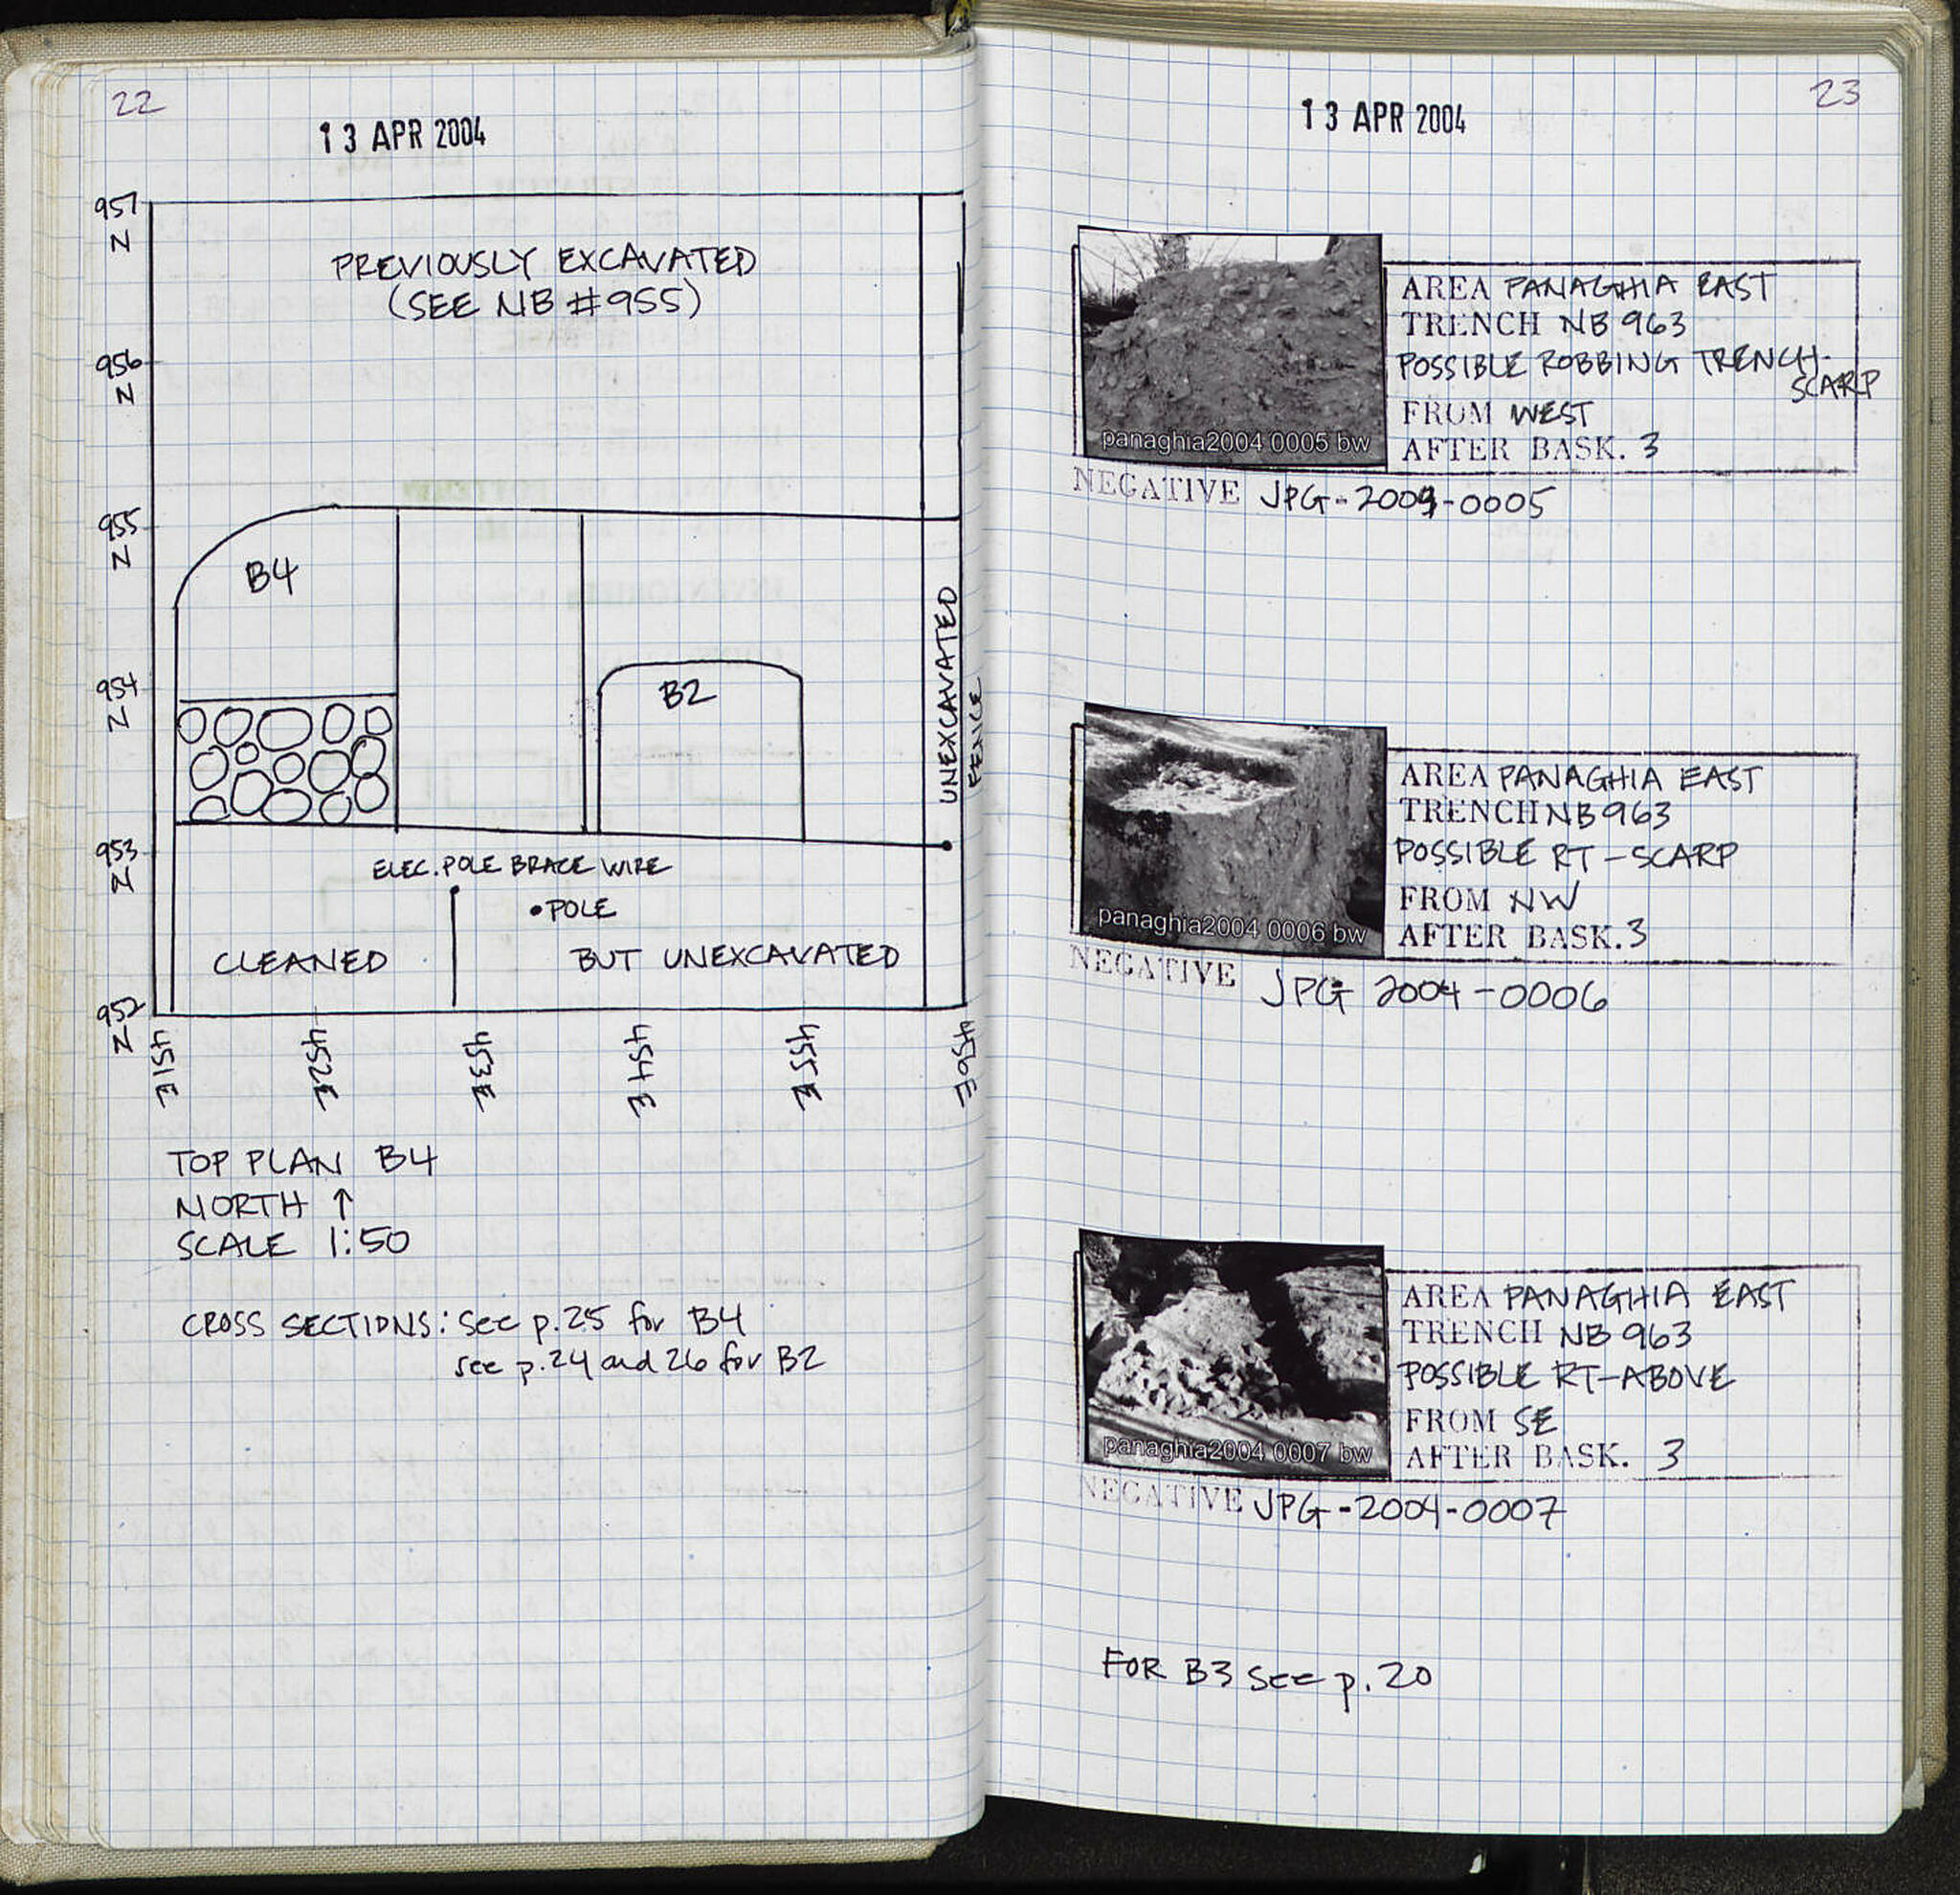 22
13 APR 2004
957 N
PREVIOUSLY EXCAVATED
(SEE NB #955)
956 N
955 N
B4
954 N
B2
UNEXCAVATED
FENCE
953 N
ELEC. POLE BRACE WIRE
POLE
CLEANED BUT UNEXCAVATED
952 N
451E 452E 453E 454E 455E 456E
TOP PLAN B4
NORTH ↑
SCALE 1:50
CROSS SECTIONS: see p.25 for B4
see p.24 and 26 for B2
23
13 APR 2004
panaghia2004 0005 bw
AREA PANAGHIA EAST
TRENCH NB 963
POSSIBLE ROBBING TRENCH-
SCARP
FROM WEST
AFTER BASK. 3
NEGATIVE JPG-2004-0005
panaghia2004 0006 bw
AREA PANAGHIA EAST
TRENCH NB 963
POSSIBLE RT-SCARP
FROM NW
AFTER BASK. 3
NEGATIVE JPG 2004-0006
panaghia2004 0007 bw
AREA PANAGHIA EAST
TRENCH NB 963
POSSIBLE RT-ABOVE
FROM SE
AFTER BASK. 3
NEGATIVE JPG-2004-0007
FOR B3 see p. 20